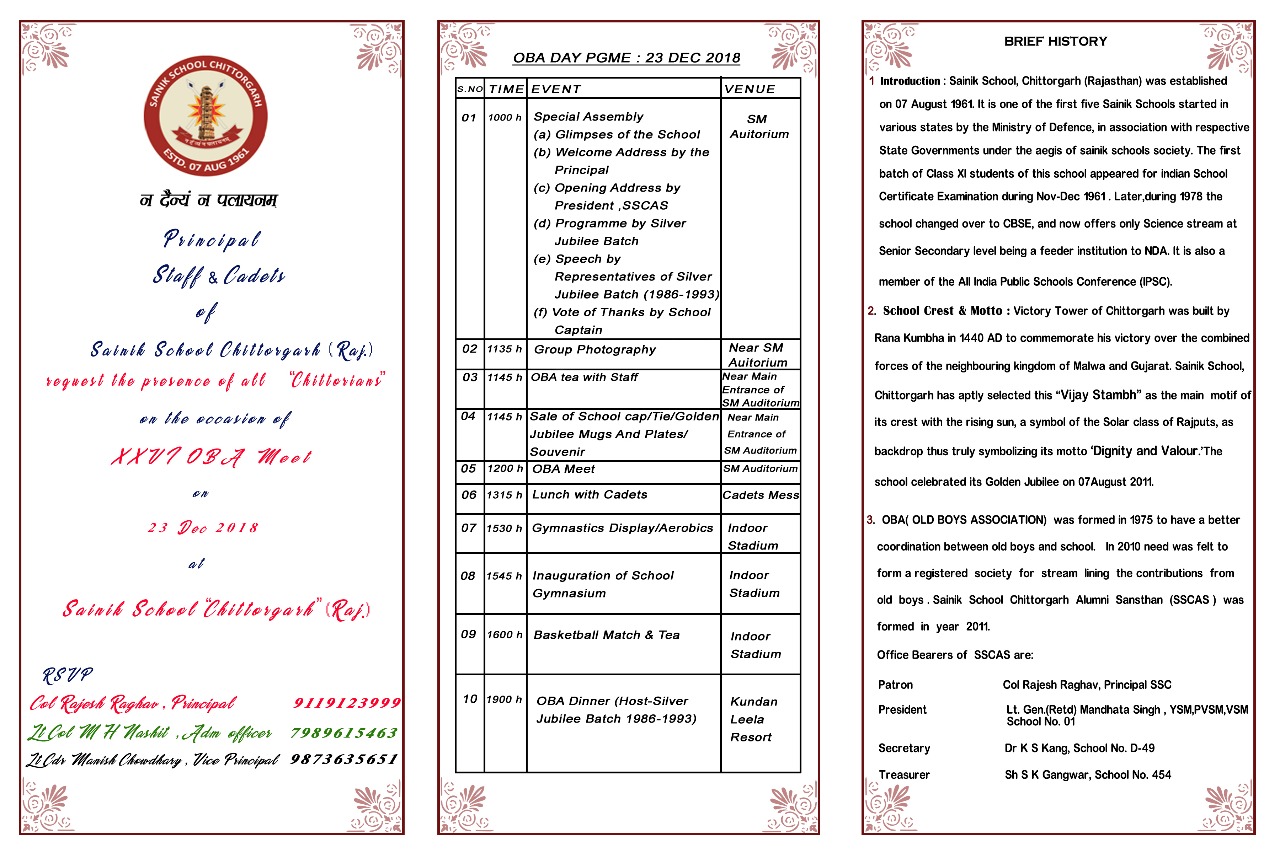 SAINIK SCHOOL CHITTORGARH
ESTD. 07 AUG 1961
न दैन्यं न पलायनम्
न दैन्यं न पलायनम्
Principal
Staff & Cadets
of
Sainik School Chittorgarh (Raj.)
request the presence of all "Chittorians"
on the occasion of
XXVI OBA Meet
on
23 Dec 2018
at
Sainik School "Chittorgarh" (Raj)
RSVP
Col Rajesh Raghav , Principal 9119123999
Lt Col M H Nashit , Adm officer 7989615463
Lt Cdr Manish Chowdhary , Vice Principal 9873635651
OBA DAY PGME : 23 DEC 2018
S.NO TIME EVENT VENUE
01 1000 h Special Assembly SM
(a) Glimpses of the School Auitorium
(b) Welcome Address by the
Principal
(c) Opening Address by
President ,SSCAS
(d) Programme by Silver
Jubilee Batch
(e) Speech by
Representatives of Silver
Jubilee Batch (1986-1993)
(f) Vote of Thanks by School
Captain
02 1135 h Group Photography Near SM
Auitorium
03 1145 h OBA tea with Staff Near Main
Entrance of
SM Auditorium
04 1145 h Sale of School cap/Tie/Golden Near Main
Jubilee Mugs And Plates/ Entrance of
Souvenir SM Auditorium
05 1200 h OBA Meet SM Auditorium
06 1315 h Lunch with Cadets Cadets Mess
07 1530 h Gymnastics Display/Aerobics Indoor
Stadium
08 1545 h Inauguration of School Indoor
Gymnasium Stadium
09 1600 h Basketball Match & Tea Indoor
Stadium
10 1900 h OBA Dinner (Host-Silver Kundan
Jubilee Batch 1986-1993) Leela
Resort
BRIEF HISTORY
1 Introduction : Sainik School, Chittorgarh (Rajasthan) was established
on 07 August 1961. It is one of the first five Sainik Schools started in
various states by the Ministry of Defence, in association with respective
State Governments under the aegis of sainik schools society. The first
batch of Class XI students of this school appeared for indian School
Certificate Examination during Nov-Dec 1961 . Later,during 1978 the
school changed over to CBSE, and now offers only Science stream at
Senior Secondary level being a feeder institution to NDA. It is also a
member of the All India Public Schools Conference (IPSC).
2. School Crest & Motto : Victory Tower of Chittorgarh was built by
Rana Kumbha in 1440 AD to commemorate his victory over the combined
forces of the neighbouring kingdom of Malwa and Gujarat. Sainik School,
Chittorgarh has aptly selected this "Vijay Stambh" as the main motif of
its crest with the rising sun, a symbol of the Solar class of Rajputs, as
backdrop thus truly symbolizing its motto 'Dignity and Valour.'The
school celebrated its Golden Jubilee on 07August 2011.
3. OBA( OLD BOYS ASSOCIATION) was formed in 1975 to have a better
coordination between old boys and school. In 2010 need was felt to
form a registered society for stream lining the contributions from
old boys . Sainik School Chittorgarh Alumni Sansthan (SSCAS ) was
formed in year 2011.
Office Bearers of SSCAS are:
Patron Col Rajesh Raghav, Principal SSC
President Lt. Gen.(Retd) Mandhata Singh , YSM,PVSM,VSM
School No. 01
Secretary Dr K S Kang, School No. D-49
Treasurer Sh S K Gangwar, School No. 454